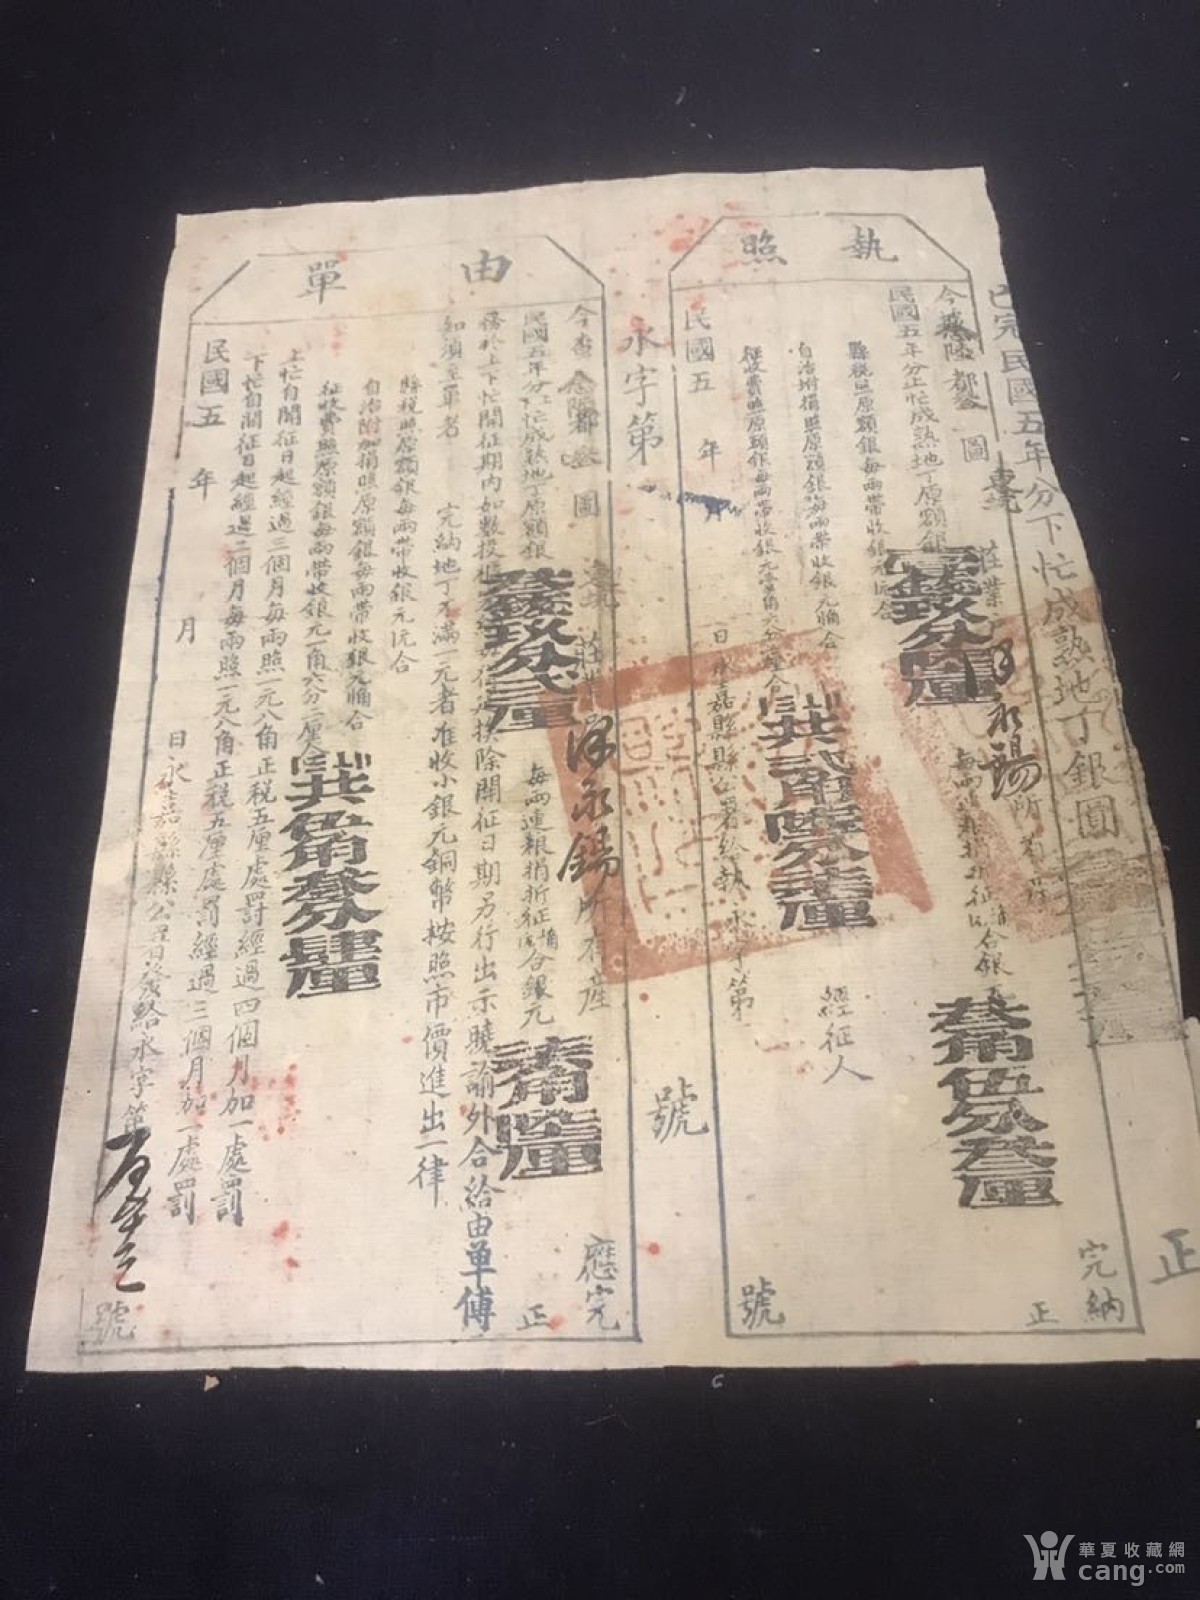 已完民國五年分下忙成熟地丁銀圓
正
執照
今據念陸都 圖 莊業 所有產
民國五年分上忙成熟地丁原額銀
每兩連粮捐折征 合銀元
叁角伍分叁厘
完納
正
縣稅照原額銀每兩帶收銀元 合
自治附捐照原額銀每兩帶收銀元 合
征收費照原額銀每兩帶收銀元壹角六分二厘合
共弍角陸分柒厘
經征人
民國五年 月 日永嘉縣縣公署給執永字第 號
永字第 號
由單
今查念陸都 圖 莊業 所有產
應完
民國五年分上忙成熟地丁原額銀
叁錢玖分弍厘
每兩連粮捐折征 合銀元
柒角陸厘
正
務於上下忙開征期內如數投 除開征日期另行出示曉諭外合給由單傅
知須至單者
完納地丁不滿一元者准收小銀元銅幣按照市價進出一律
縣稅照原額銀每兩帶收銀元 合
自治附加捐照原額銀每兩帶收銀元 合
征收費照原額銀每兩帶收銀元一角六分二厘合
共伍角叁分肆厘
上忙自開征日起經過三個月每兩照一元八角正稅五厘處罰經過四個月加一處罰
下忙自開征日起經過二個月每兩照一元八角正稅五厘處罰經過三個月加一處罰
民國五年 月 日永嘉縣縣公署發給永字第 號
華夏收藏網
cang.com